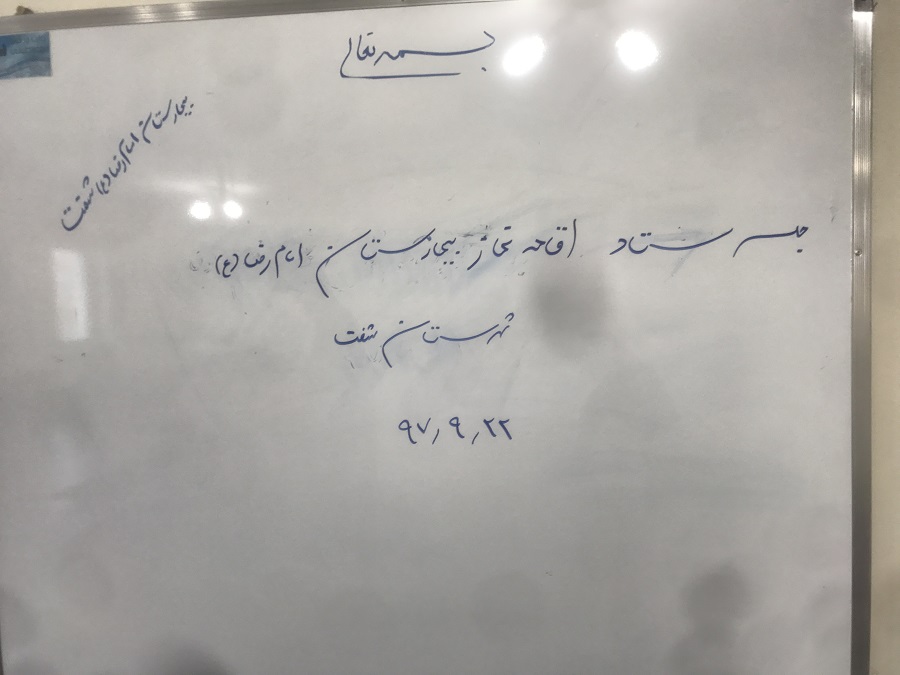 بسمه تعالی
بیمارستان امام رضا (ع) شفت
جلسه ستاد اقامه نماز بیمارستان امام رضا (ع)
شهرستان شفت
۹۷/۹/۲۲